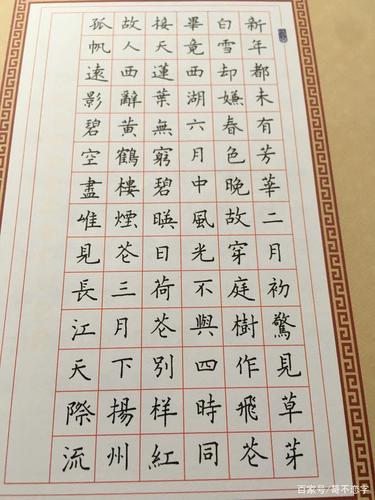 新年都未有芳華二月初驚見草芽
白雪却嫌春色晚故穿庭樹作飛花
畢竟西湖六月中風光不與四時同
接天蓮葉無窮碧暎日荷花別樣紅
故人西辭黃鶴樓煙花三月下揚州
孤帆遠影碧空盡唯見長江天際流
百家号/哥不恋字